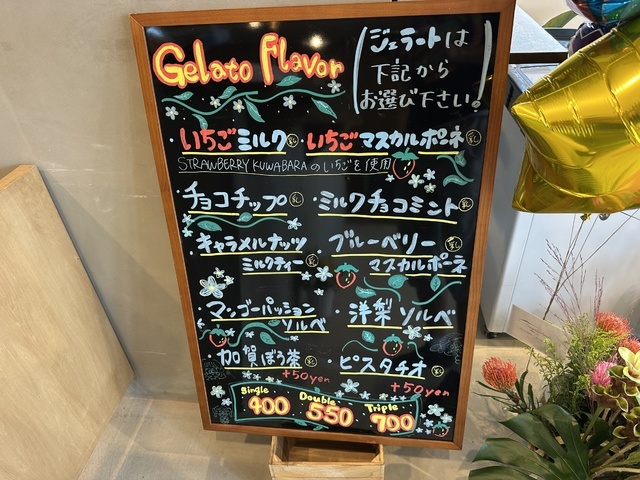 Gelato Flavor
ジェラートは
下記から
お選び下さい!
・いちごミルク乳 ・いちごマスカルポーネ乳
STRAWBERRY KUWABARAのいちごを使用
・チョコチップ乳 ・ミルクチョコミント乳
・キャラメルナッツ
ミルクティー乳
・ブルーベリー乳
マスカルポーネ
・マンゴーパッション
ソルベ
・洋梨ソルベ
・加賀ぼう茶乳 ・ピスタチオ乳
+50yen +50yen
Single Double Triple
400 550 700